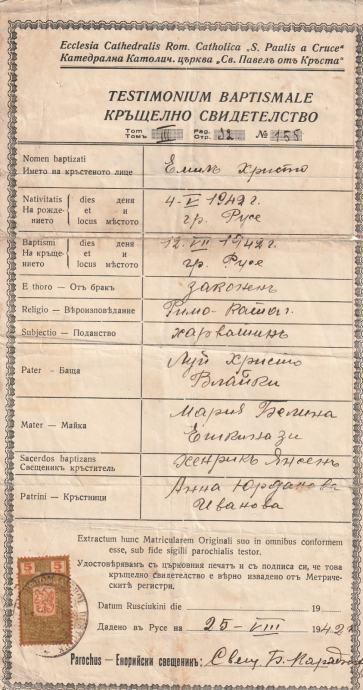 Ecclesia Cathedralis Rom. Catholica „S. Paulis a Cruce"
Катедрална Католич. църква „Св. Павелъ отъ Кръста"
TESTIMONIUM BAPTISMALE
КРЪЩЕЛНО СВИДЕТЕЛСТВО
Tom Томъ III Pag. Стр. 32 № 155
Nomen baptizati
Името на кръстевото лице Емил Христо
Nativitatis dies деня 4-V 1942 г.
На рожде- et и
нието locus мѣстото гр. Русе
Baptismi dies деня 12. VII 1942 г.
На кръще- et и
нието locus мѣстото гр. Русе
E thoro – Отъ бракъ законенъ
Religio – Вѣроизповѣдание Римо-катол.
Subjectio – Поданство
Pater – Баща Луи Христо
Mater – Майка Мария
Sacerdos baptizans
Свещеникъ кръстител Хенрикъ
Patrini – Кръстници Анна Юрданова
Иванова
Extractum hunc Matricularem Originali suo in omnibus conformem
esse, sub fide sigilli parochialis testor.
Удостовѣрявамъ съ църковния печатъ и съ подписа си, че това
кръщелно свидетелство е вѣрно извадено от Метриче-
ските регистри.
Datum Rusciukini die 19
Дадено въ Русе на 25-VIII 1942 г.
Parochus – Енорийски свещеникъ: Свещ. Б.
5 5